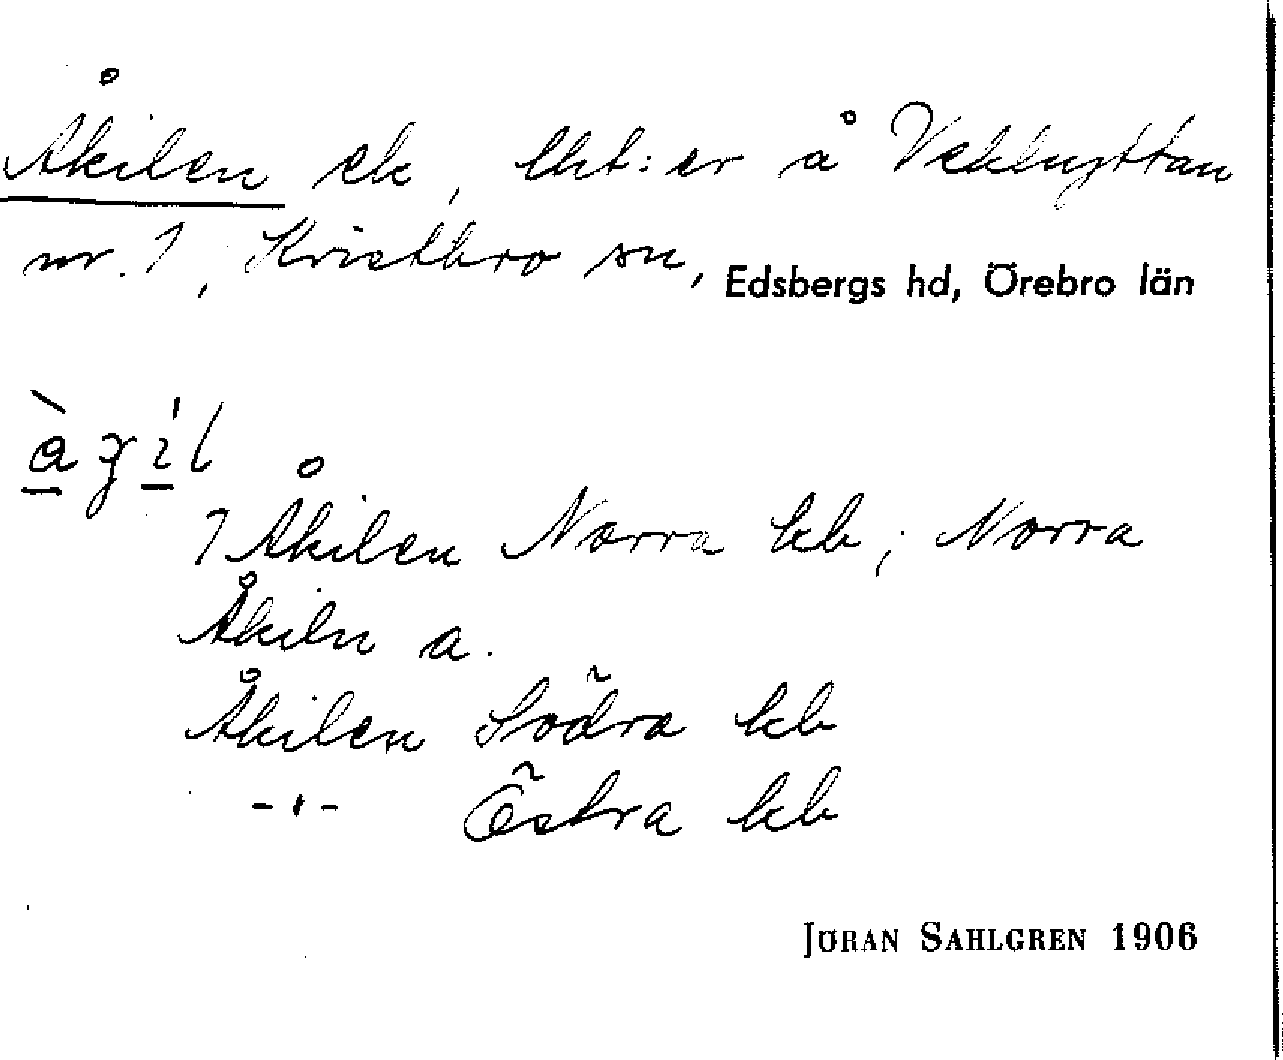 Åkilen ek, lht:er å Vekhyttan
nr. 1, Kvistbro sn, Edsbergs hd, Örebro län
Åkilen Norra kb; Norra
Åkiln a.
Åkilen Södra kb
-"- Östra kb
JÖRAN SAHLGREN 1906